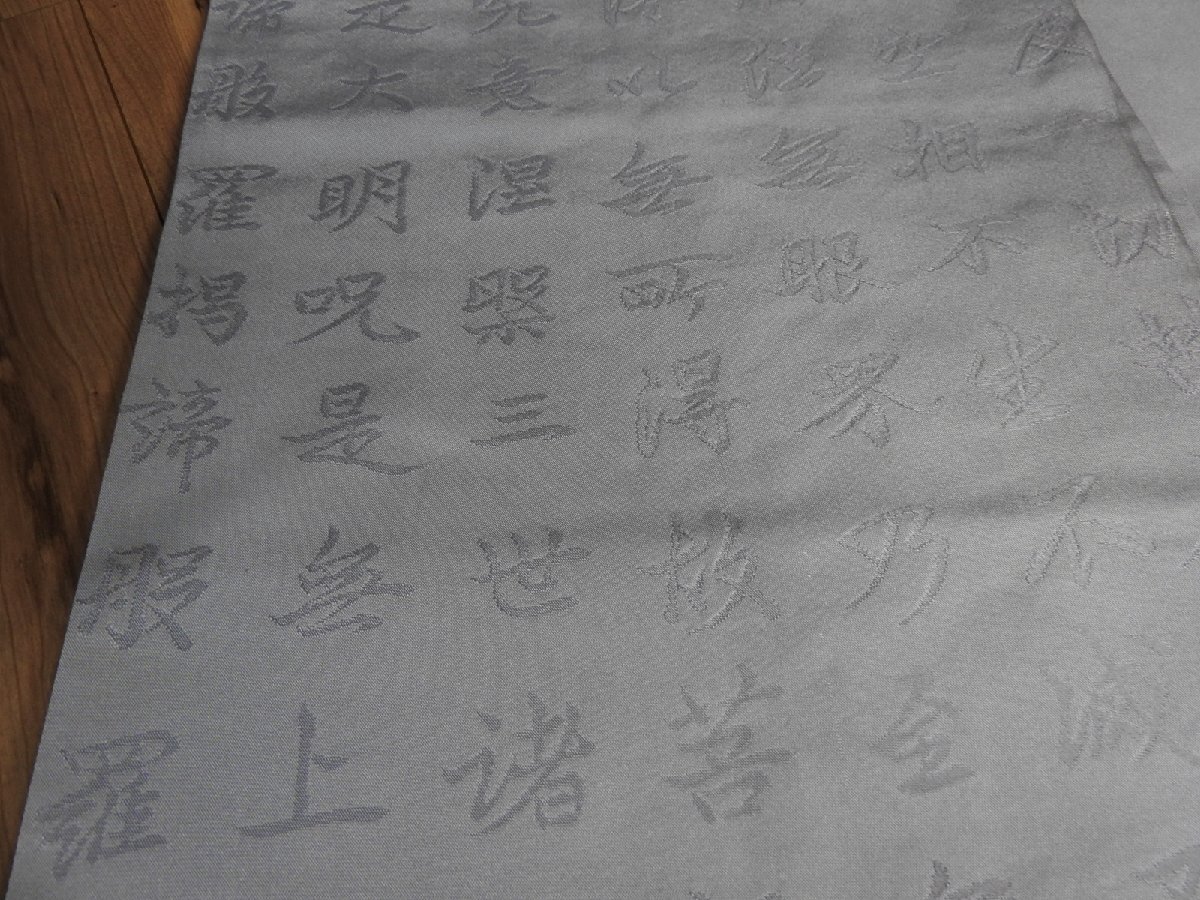 度一切苦
空相不生不滅
法無眼界乃至
以無所得故菩
究竟涅槃三世諸
是大明呪是無上
諦般羅揭諦般羅